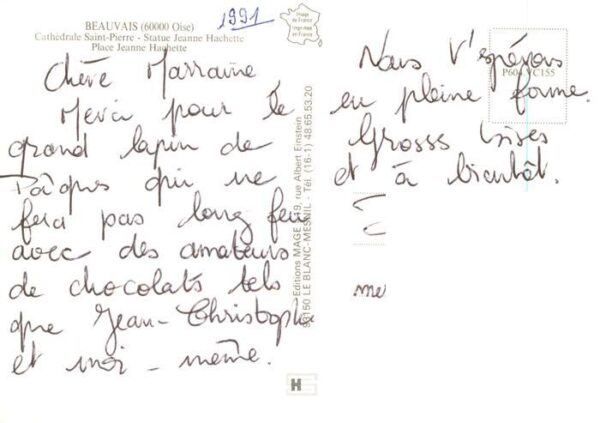 1991
BEAUVAIS (60000 Oise)
Cathédrale Saint-Pierre - Statue Jeanne Hachette
Place Jeanne Hachette
Image de France
Chère Marraine
Merci pour le
grand lapin de
Pâques qui ne
fera pas long feu
avec des amateurs
de chocolats tels
que Jean-Christophe
et moi-même.
Editions MAGE - 19, rue Albert Einstein
93150 LE BLANC-MESNIL - Tél. (16-1) 48.65.53.20
P604 VC155
Nous t'espérons
en pleine forme.
Grosses bises
et à bientôt.
me
H